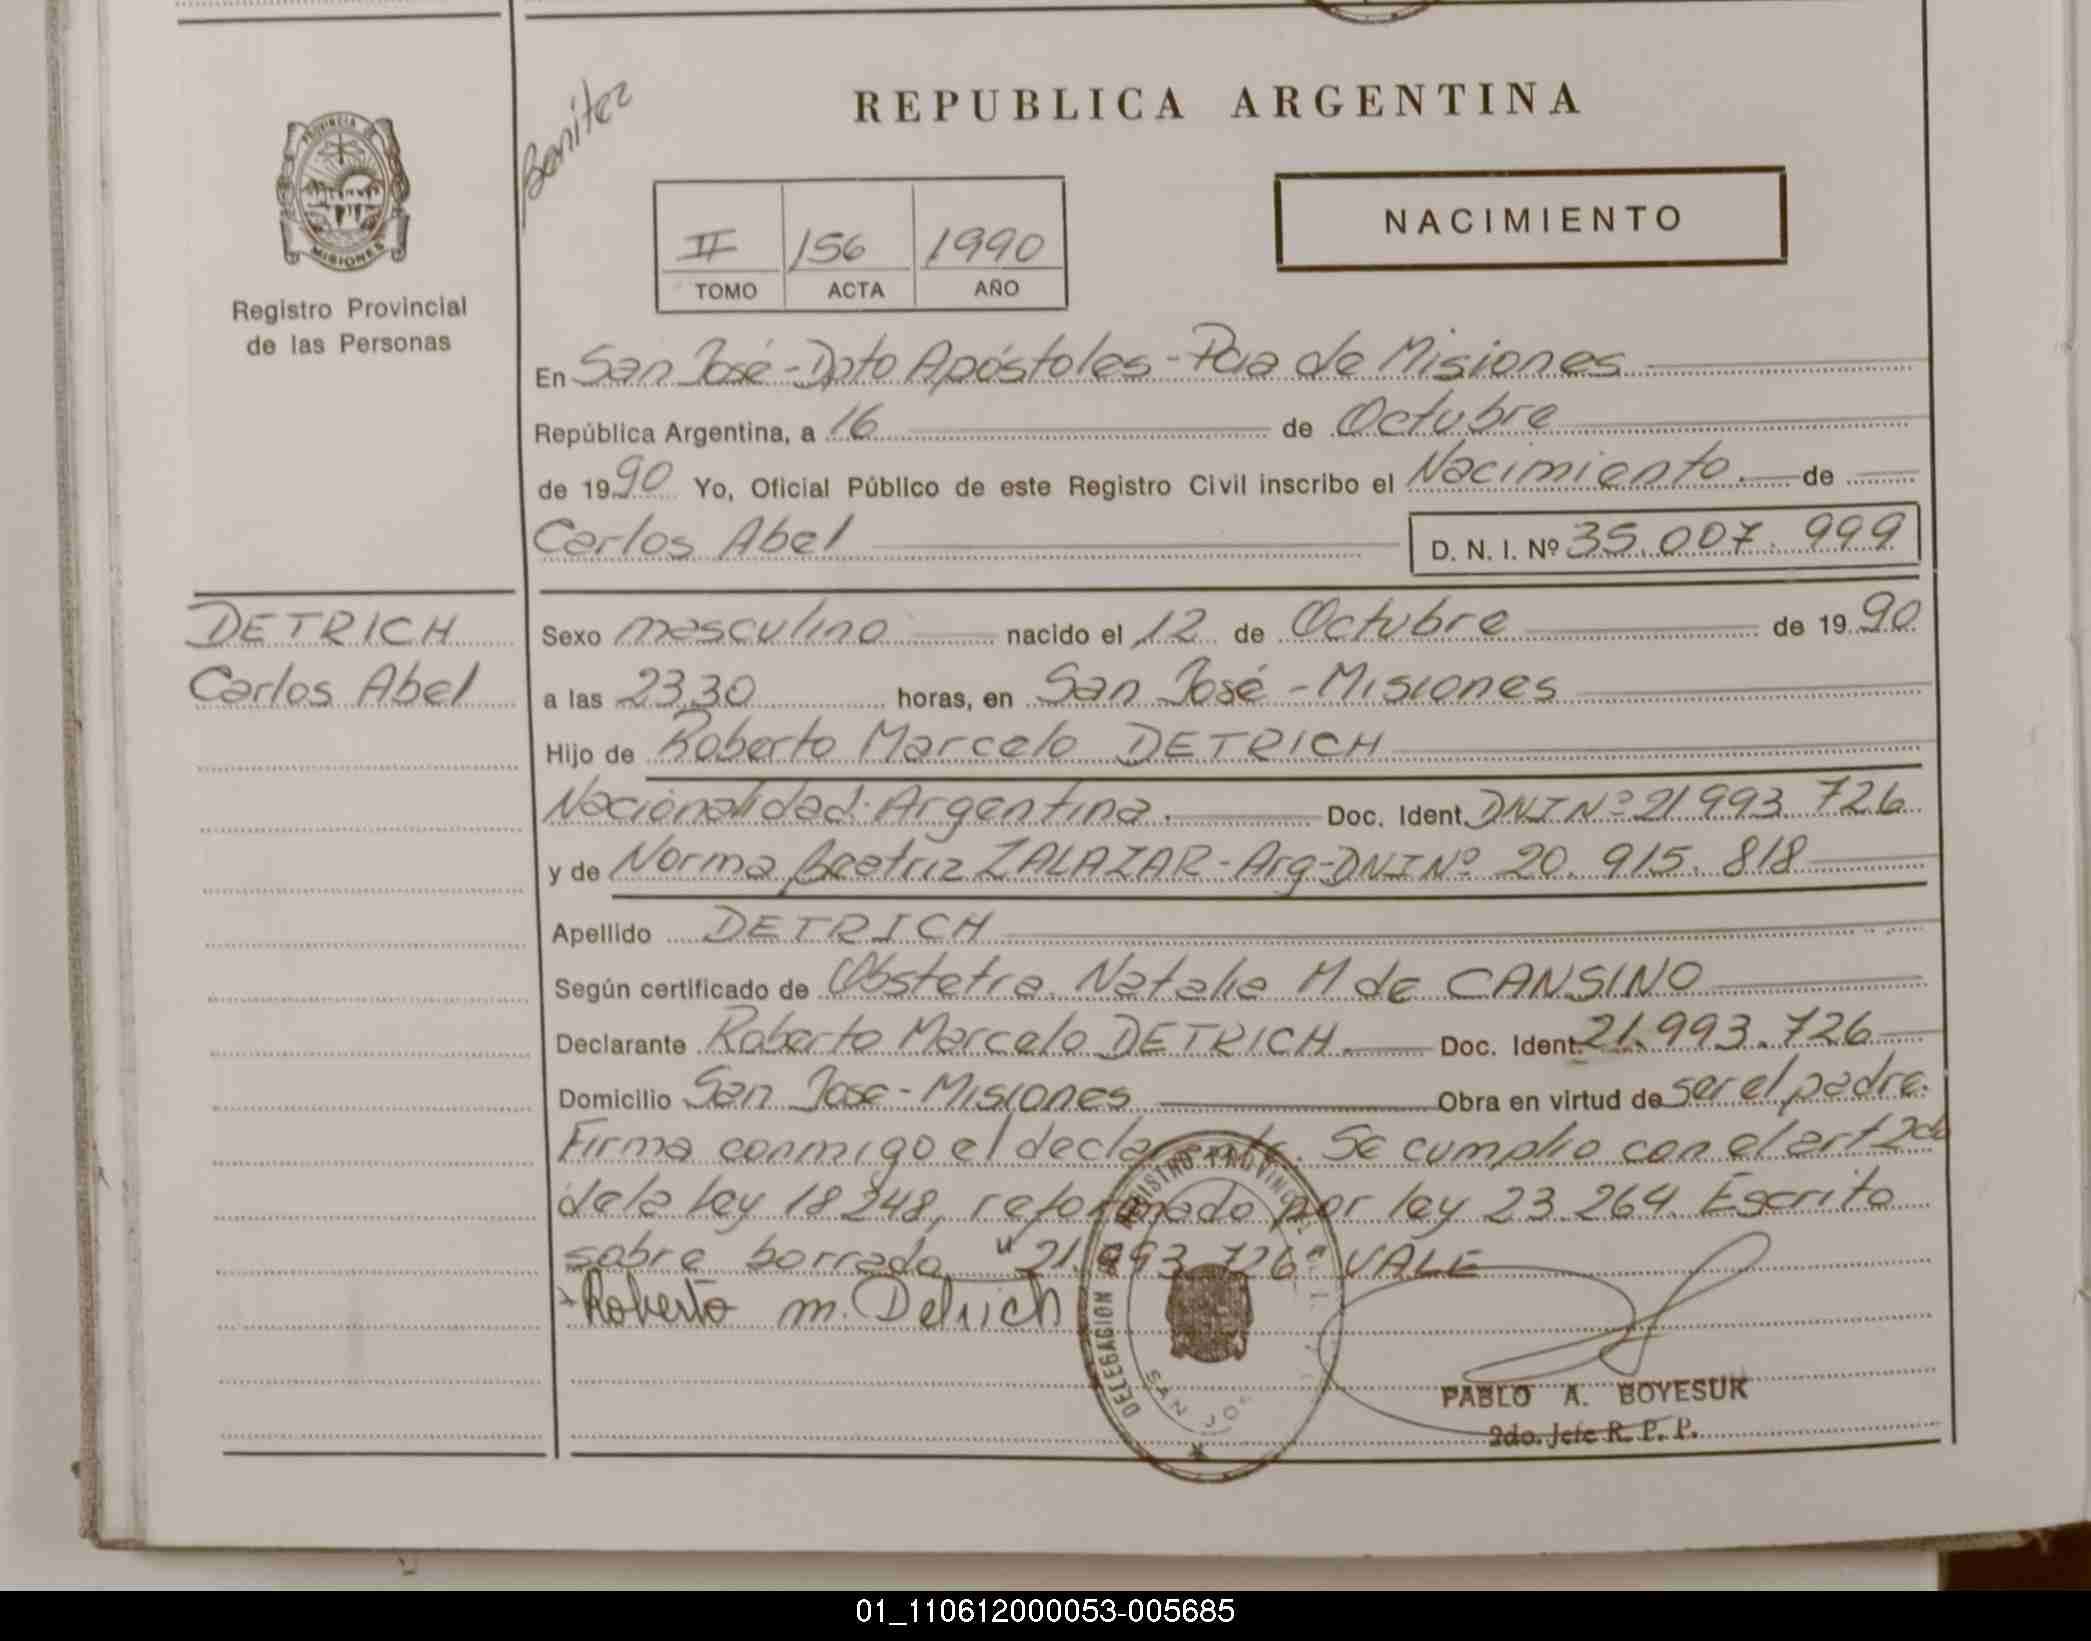 PROVINCIA DE
MISIONES
Registro Provincial
de las Personas
Benitez
REPUBLICA ARGENTINA
II 156 1990
TOMO ACTA AÑO
NACIMIENTO
En San José - Dpto Apóstoles - Pcia de Misiones
República Argentina, a 16 de Octubre
de 1990 Yo, Oficial Público de este Registro Civil inscribo el Nacimiento. de
Carlos Abel D. N. I. Nº 35.007.999
DETRICH
Carlos Abel
Sexo masculino nacido el 12 de Octubre de 1990
a las 23.30 horas, en San José - Misiones
Hijo de Roberto Marcelo DETRICH
Nacionalidad: Argentina. Doc. Ident. DNI Nº 21.993.726
y de Norma Beatriz ZALAZAR - Arg - DNI Nº 20.915.818
Apellido DETRICH
Según certificado de Obstetra. Natalia M de CANSINO
Declarante Roberto Marcelo DETRICH. Doc. Ident. 21.993.726
Domicilio San Jose - Misiones Obra en virtud de ser el padre.
Firma conmigo el declarante. Se cumplio con el art 2do
de la ley 18248, reformado por ley 23.264. Escrito
sobre borrado "21.993.726" VALE
Roberto m. Detrich
DELEGACION REGISTRO PROVINCIAL
SAN JOSE
PABLO A. BOYESUK
2do. Jefe R. P. P.
01_110612000053-005685